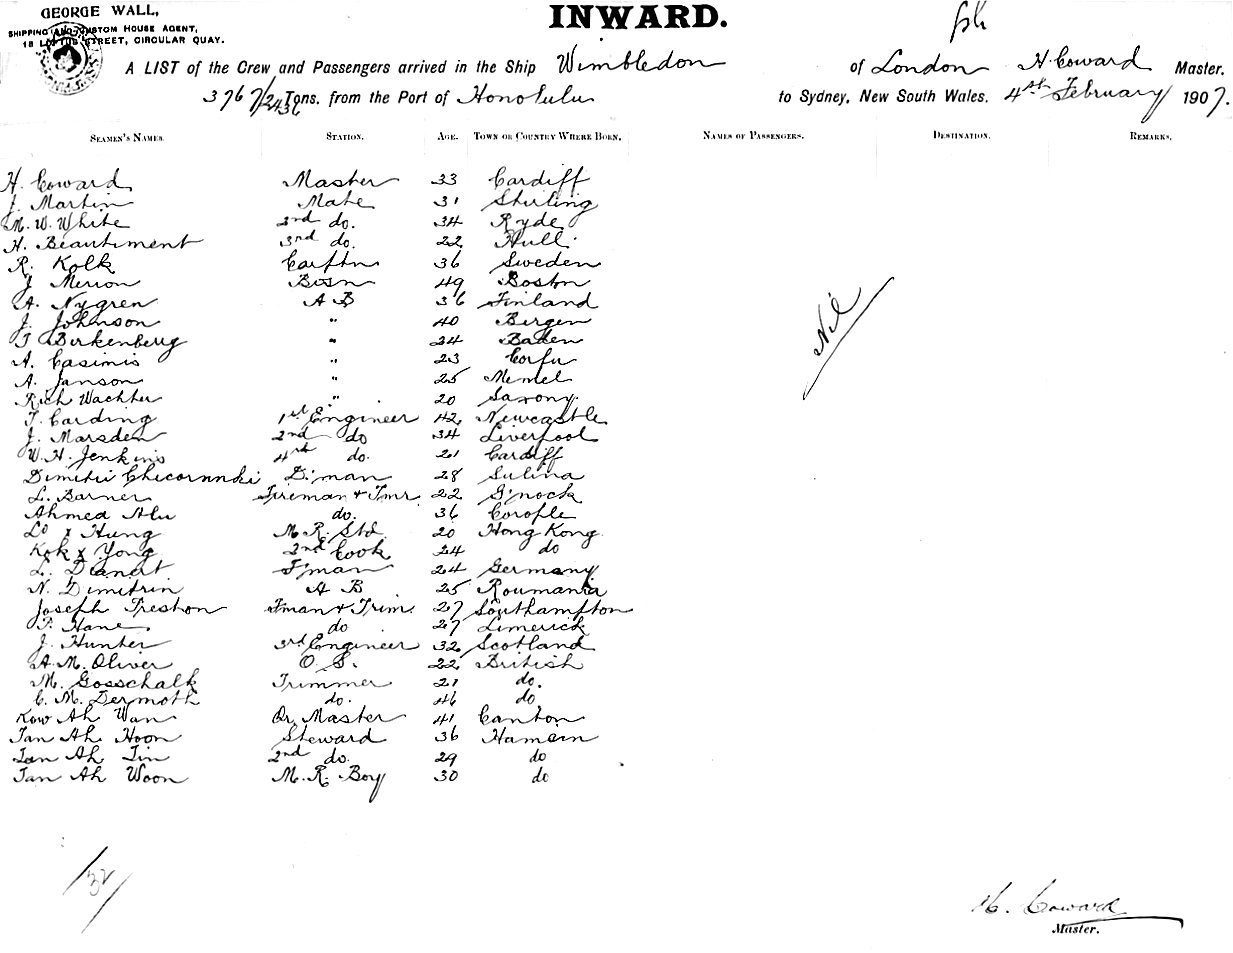 GEORGE WALL,
SHIPPING AND CUSTOM HOUSE AGENT,
18 LOFTUS STREET, CIRCULAR QUAY.
INWARD.
A LIST of the Crew and Passengers arrived in the Ship Wimbledon of London H. Coward Master.
3767/2436 Tons. from the Port of Honolulu to Sydney, New South Wales. 4th February 1907.
SEAMEN'S NAMES. STATION. AGE. TOWN OR COUNTRY WHERE BORN. NAMES OF PASSENGERS. DESTINATION. REMARKS.
H. Coward Master 33 Cardiff
J. Martin Mate 31 Stirling
M. W. White 2nd do. 34 Ryde
H. Beautiment 3rd do. 22 Hull
R. Kolk Carptn 36 Sweden
J Merion Bosn 49 Boston
A. Nygren A B 36 Finland
J. Johnson " 40 Bergen
T Berkenberg " 24 Baden
A. Casimis " 23 Corfu
A. Janson " 25 Memel
Rich Wachter " 20 Saxony
T. Carding 1st Engineer 42 Newcastle
J. Marsden 2nd do 34 Liverpool
W. H. Jenkins 4th do. 21 Cardiff
Dimitri D'man 28 Sulina
L. Barner Fireman & Tmr. 22 G'nock
Ahmed Alu do. 36
Lo x Hung M. R. Std. 20 Hong Kong
Kok x Yong 2nd Cook 24 do
L. F'man 24 Germany
N. Dimitrin A B 25 Roumania
Joseph Preston Fman & Trim. 27 Southampton
P. Hane do 27 Limerick
J. Hunter 3rd Engineer 32 Scotland
A. M. Oliver O. S. 22 British
M. Gosschalk Trimmer 21 do.
C. M. Dermoth do. 46 do
Kow Ah Wan Qr. Master 41 Canton
Tan Ah Hoon Steward 36
Tan Ah Tin 2nd do. 29 do
Tan Ah Woon M. R. Boy 30 do
Nil
/32/
H. Coward
Master.